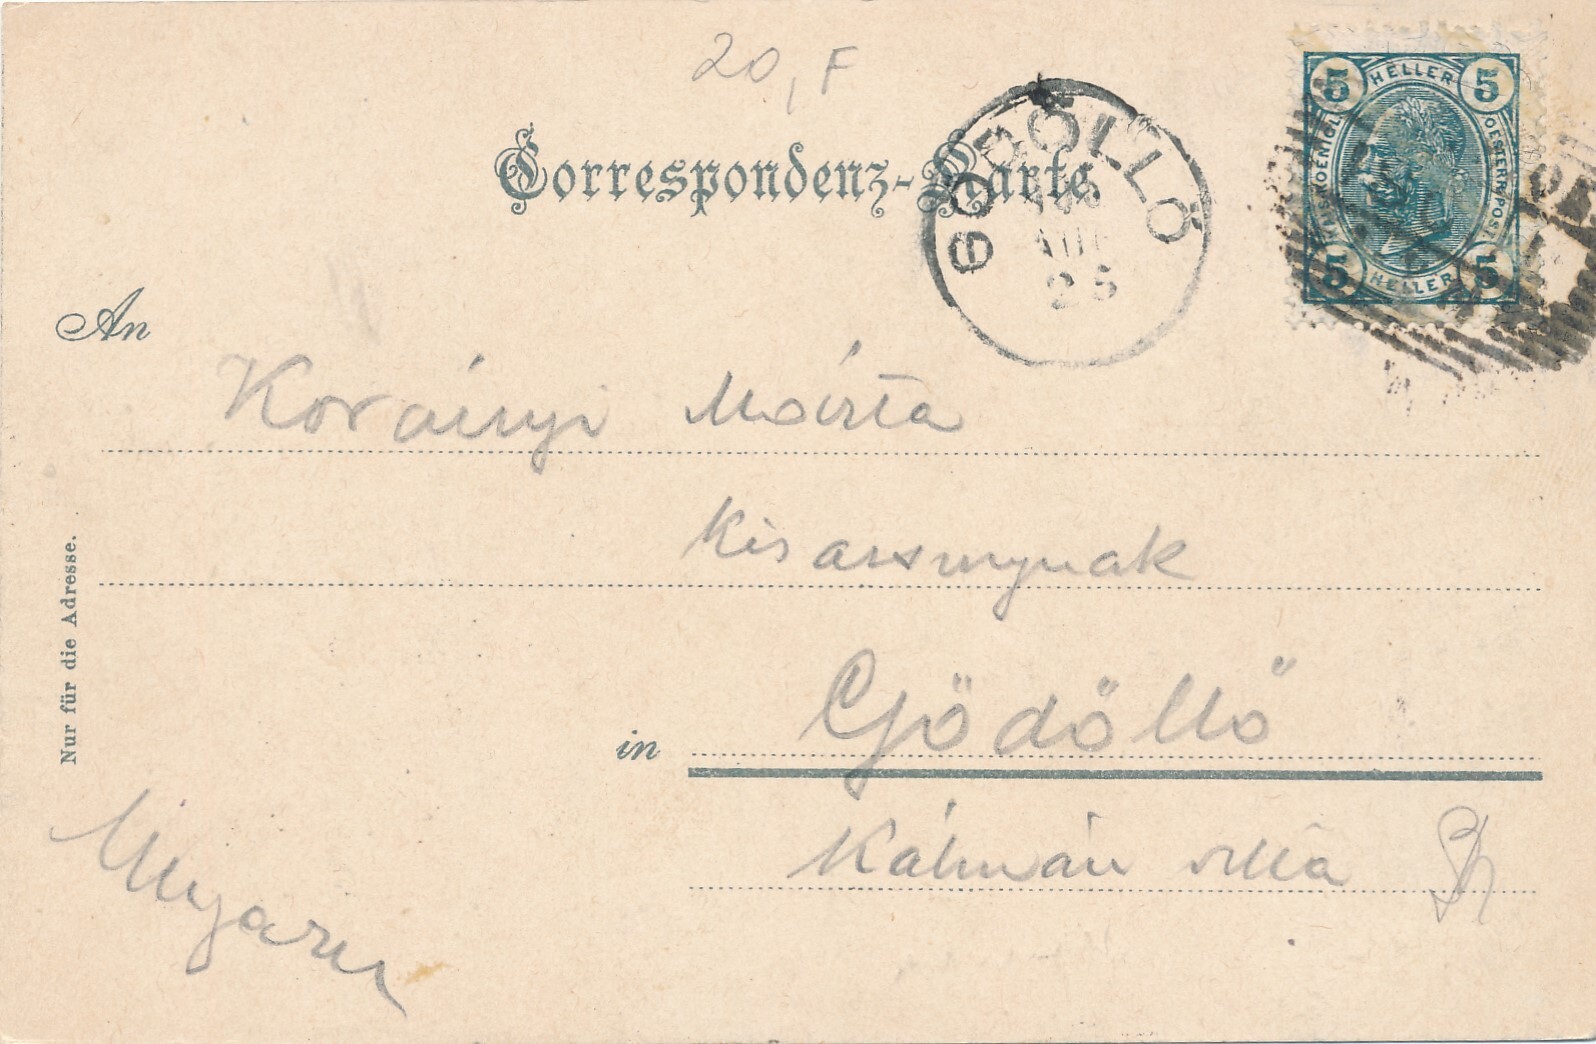 20, F
Correspondenz-Karte.
GÖDÖLLŐ
AUG
25
5 HELLER 5
KAIS. KOENIGL. OESTERR. POST.
5 HELLER 5
An
Korányi Márta
Kisasszonynak
in
Gödöllő
Kálmán villa
Nur für die Adresse.
Ungarn